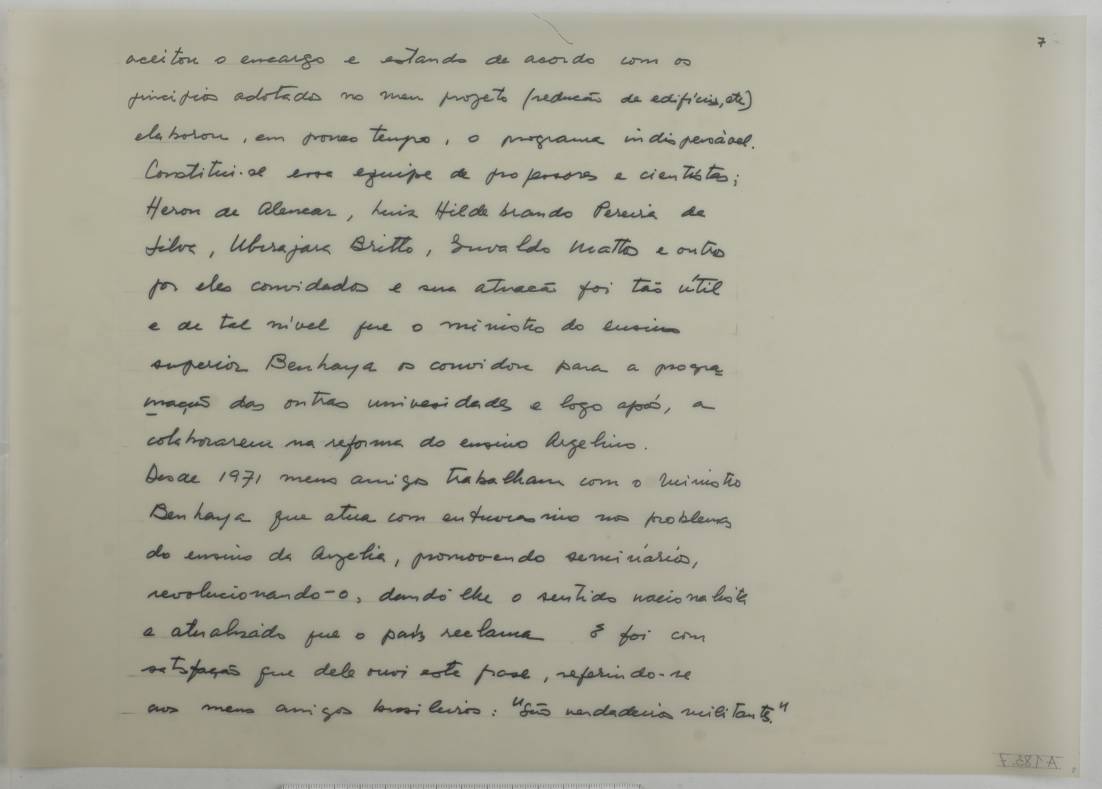 7
aceitou o encargo e estando de acordo com os
principios adotados no meu projeto (redução de edifícios, etc)
elaborou, em pouco tempo, o programa indispensável.
Constitui-se essa equipe de professores e cientistas;
Heron de Alencar, Luiz Hildebrando Pereira da
Silva, Ubirajara Britto, Euvaldo Mattos e outros
por eles convidados e sua atuação foi tão útil
e de tal nível que o ministro do ensino
superior Benhaya os convidou para a progra
mação das outras universidades e logo após, a
colaborarem na reforma do ensino Argelino.
Desde 1971 meus amigos trabalham com o ministro
Benhaya que atua com entusiasmo nos problemas
do ensino da Argelia, promovendo seminários,
revolucionando-o, dando lhe o sentido nacionalista
e atualizado que o país reclama E foi com
satisfação que dele ouvi esta frase, referindo-se
aos meus amigos brasileiros: "São verdadeiros militantes."
A 185.7